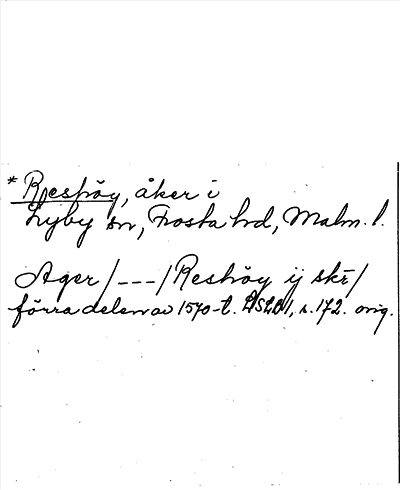 * Reshöy, åker i
Lyby sn, Frosta hd, Malm. l.
Ager /---/ Reshöy ij skr /
förra delen av 1570-t. s. 172. orig.